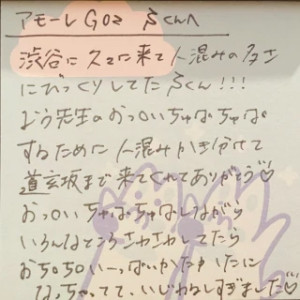 アモーレGOZ らくんへ
渋谷に久々に来て人混みの多さ
にびっくりしてたらくん!!!
よう先生のおっぱいちゅぱちゅぱ
するために人混みかき分けて
道玄坂まで来てくれてありがとう♡
おっぱいちゅぱちゅぱしながら
いろんなところさわさわしてたら
おちんちんいーっぱいかたくに
なっちゃってて、いじわるしすぎました♡